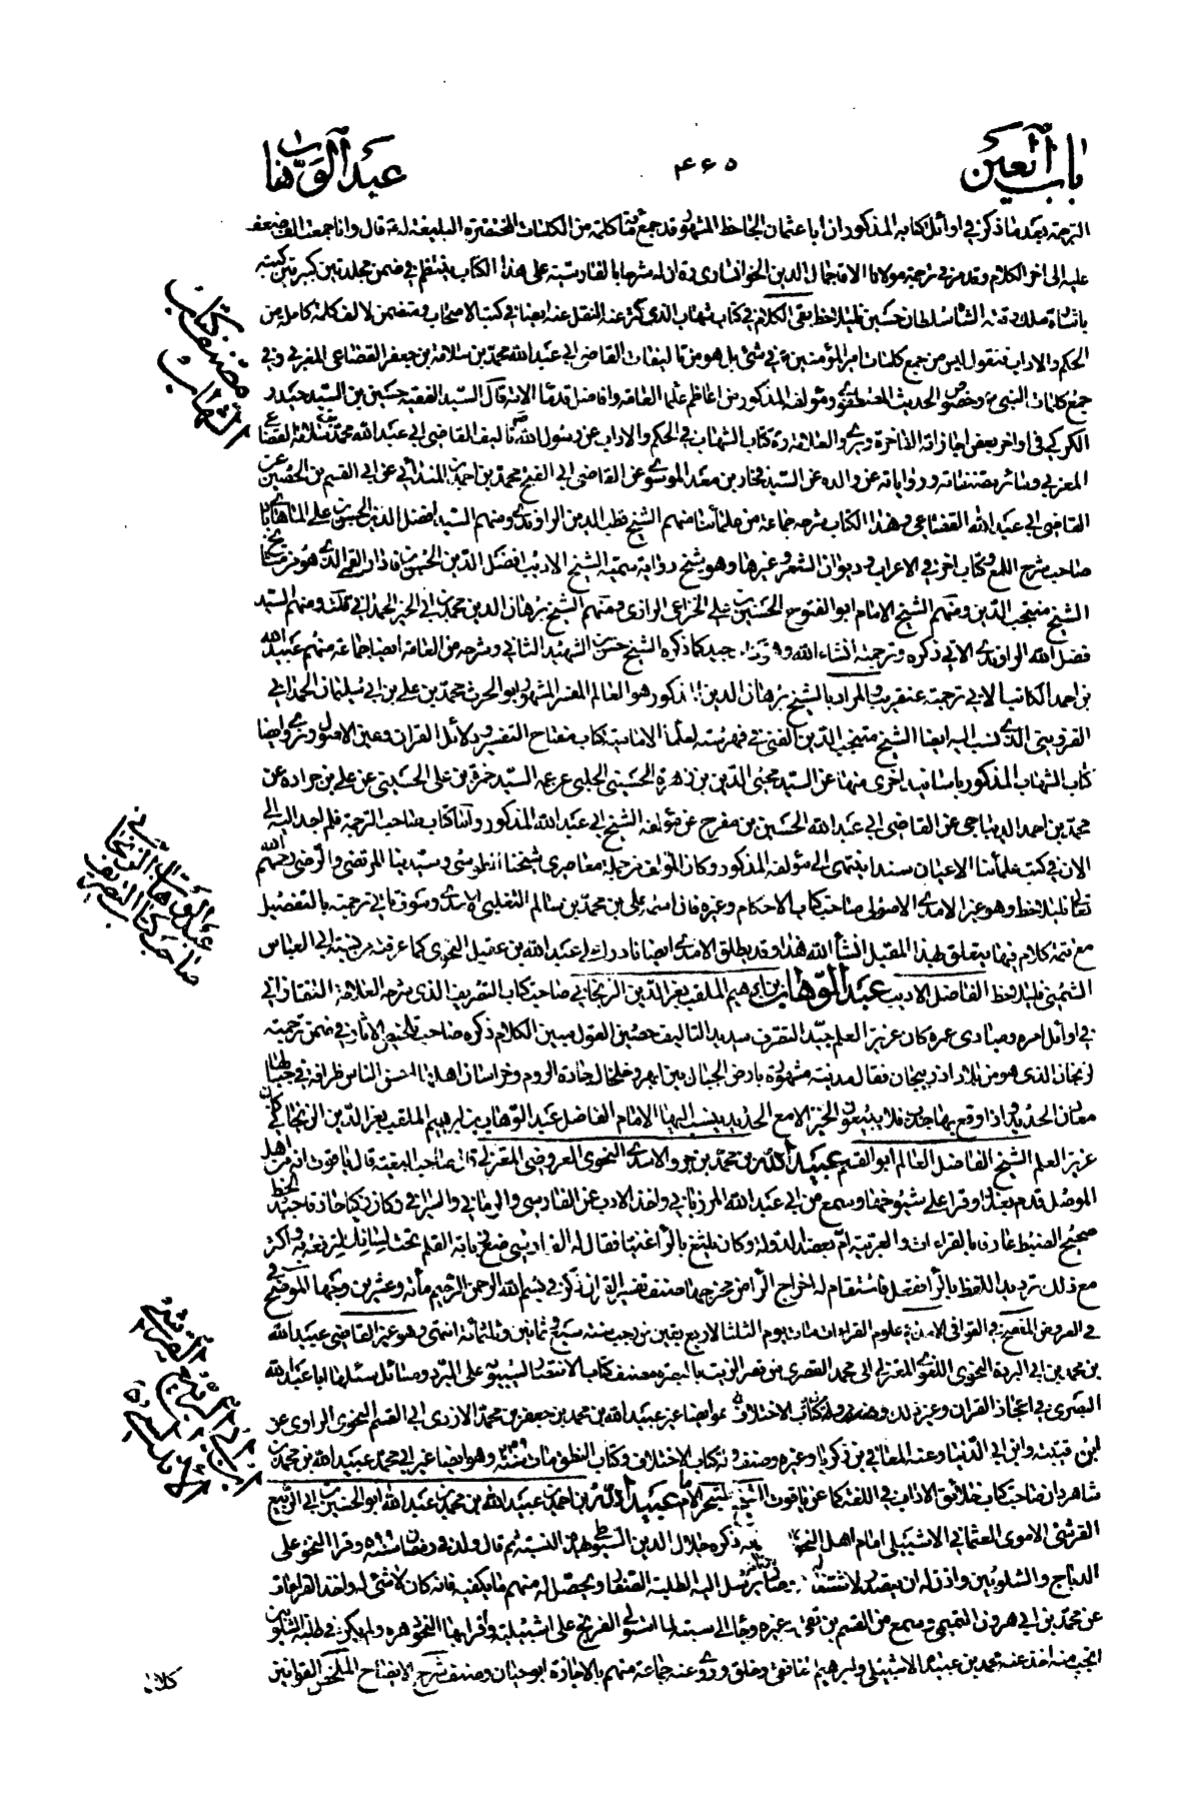 باب العين
٤٦٥
عبد الوهاب
الترجمة بعد ما ذكر في اوائل كتابه المذكور ان ابا عثمان الجاحظ المشهور قد جمع مأة كلمة من الكلمات المختصرة البليغة له ع قال وانا جمعت الف ضعف
عليه الى اخر الكلام وقد مر في ترجمة مولانا الاقا جمال الدين الخوانساري ره ان له شرحا بالفارسية على هذا الكتاب ينتظم في ضمن مجلدتين كبيرتين كتبه
باشارة ملك وقته الشاه سلطان حسين فليلاحظ بقى الكلام في كتاب شهاب الذي كثر عنه النقل عنه ايضا في كتب الاصحاب ومتضمن لالف كلمة كاملة من
الحكم والاداب فنقول ليس من جمع كلمات امير المؤمنين ع في شئ بل هو من تاليفات القاضي ابي عبد الله محمد بن سلامة بن جعفر القضاعي المغربي وفي
جمع كلمات النبي ص وخصوص الحديث المصطفوي ومؤلفه المذكور من اعاظم علماء العامة وافاضل قدمائهم لانه قال السيد الفقيه حسين بن السيد حيدر
الكركي في اواخر بعض اجازاته الفاخرة ويروي العلامة ره كتاب الشهاب في الحكم والاداب عن رسول الله ص تاليف القاضي ابي عبد الله محمد بن سلامة القضاعي
المغربي وسائر مصنفاته ورواياته عن والده عن السيد فخار بن معد الموسوي عن القاضي ابي الفتح محمد بن احمد بن المندائي عن ابي القسم بن الحصين عن
القاضي ابي عبد الله القضاعي وهذا الكتاب شرحه جماعة من علمائنا منهم الشيخ قطب الدين الراوندي ومنهم السيد افضل الدين الحسن بن علي الماهابادي
صاحب شرح اللمع وكتاب اخر في الاعراب وديوان الشعر وغيرها وهو شيخ رواية سميه الشيخ الاديب افضل الدين الحسن بن فادار القمي الذي هو من مشايخ
الشيخ منتجب الدين ومنهم الشيخ الامام ابو الفتوح الحسين بن علي الخزاعي الرازي ومنهم الشيخ برهان الدين محمد بن ابي الخير الحمداني قلت ومنهم السيد
فضل الله الراوندي الاتي ذكره وترجمته انشاء الله وهو جيد كما ذكره الشيخ حسن بن الشهيد الثاني وشرحه من العامة ايضا جماعة منهم عبيد الله
بن احمد الكاتب الاتي ترجمته عنقريب والمراد بالشيخ برهان الدين المذكور هو العالم المفسر المشهور ابو الحرث محمد بن علي بن ابي سليمان الحمداني
القزويني الذي نسب اليه ايضا الشيخ منتجب الدين القمي في فهرسته لعلماء الامامية كتاب مفتاح التفسير ودلائل القران وعين الاصول ويروي ايضا
كتاب الشهاب المذكور باسانيد اخرى منها عن السيد محيي الدين بن زهرة الحسيني الحلبي عن عمه السيد حمزة بن علي الحسيني عن علي بن جرادة عن
محمد بن احمد الديباجي عن القاضي ابي عبد الله الحسين بن مفرج عن مؤلفه الشيخ ابي عبد الله المذكور واما كتاب صاحب الترجمة فلم اجد اليه الى
الان في كتب علمائنا الاعيان سندا ينتهى الى مؤلفه المذكور وكان المؤلف من جملة معاصري شيخنا الطوسي وسيدينا المرتضى والرضي رحمهم الله
تعالى فليلاحظ وهو غير الامدي الاصولي صاحب كتاب الاحكام وغيره فان اسمه علي بن محمد بن سالم التغلبي الامدي وسوف ياتي ترجمته بالتفصيل
مع تتمة كلام فيما يتعلق بهذا المقيل انشاء الله هذا وقد يطلق الامدي ايضا نادرا على عبد الله بن عقيل النحوي كما عرفته من نسبة ابي العباس
الشمني فليلاحظ الفاضل الاديب عبد الوهاب بن ابراهيم الملقب بعز الدين الزنجاني صاحب كتاب التصريف الذي شرحه العلامة التفتازاني
في اوائل امره ومبادى عمره كان عزيز العلم جيد التصرف سديد التاليف حصين القول مبين الكلام ذكره صاحب تلخيص الاثار في ضمن ترجمته
لزنجان الذي هو من بلاد اذربيجان فقال مدينة مشهورة بارض الجبال بين ابهر وخلخال جادة الروم وخراسان اهلها احسن الناس ظرافة في جبالها
معادن الحديد واذا وقع بها جدب فلا يبيعون الخبز الا مع الحديد ينسب اليها الامام الفاضل عبد الوهاب بن ابراهيم الملقب بعز الدين الزنجاني كان
عزيز العلم الشيخ الفاضل العالم ابو القسم عبيد الله بن محمد بن جرو الاسدي النحوي العروضي المعتزلي قال صاحب البغية قال ياقوت انه من اهل
الموصل قدم بغداد وقرا على شيوخها وسمع من ابي عبد الله المرزباني واخذ الادب عن الفارسي والرماني والسيرافي وكان ذكيا حاذقا جيد الخط
صحيح الضبط عارفا بالقراءات والعربية ام بعضد الدولة وكان يلثغ بالراء غينا فقال له الفارسي ضع ذبابة القلم تحت لسانك لترفعه به واكثر
مع ذلك ترديد اللفظ بالراء ففعل فاستقام له اخراج الراء من مخرجها صنف تفسير القران ذكر في بسم الله الرحمن الرحيم مأة وعشرين وجها الموضح في
في العروض المفصح في القوافي الامد في علوم القراءات مات يوم الثلثاء لاربع بقين من رجب سنة سبع وثمانين وثلثمأة انتهى وهو غير القاضي عبيد الله
بن محمد بن ابي البردة النحوي اللغوي المعتزلي ابي محمد القصري من قصر الزيت بالبصرة مصنف كتاب الانتصار لسيبويه على المبرد ومسائل سئلها ابا عبد الله
البصري في اعجاز القران وغير ذلك وايضا غير عبيد الله بن محمد بن جعفر بن محمد الازدي ابي القسم النحوي الراوي عن
ابن قتيبة وابن ابي الدنيا وعنه المعافى بن زكريا وغيره وصنف كتاب الاختلاف وكتاب النطق مات سنة وهو ايضا غير ابي محمد عبيد الله بن محمد بن
شاهردان صاحب كتاب حدائق الاداب في اللغة كما عن ياقوت الشيخ المتبحر الامام عبيد الله بن احمد بن عبيد الله بن محمد بن عبد الله ابو الحسين بن ابي الربيع
القرشي الاموي العثماني الاشبيلي امام اهل النحو ذكره جلال الدين السيوطي بهذه النسبة ثم قال ولد في رمضان سنة ٥٩٩ وقرا النحو على
الدباج والشلوبين واذن له ان يتصدر لاشتغاله وصار يرسل اليه الطلبة الصغار ويحصل له منهم ما يكفيه فانه كان لا شئ له واخذ القراءات
عن محمد بن ابي هرون التميمي وسمع من القسم بن بقي وغيره وجاء الى سبتة لما استولى الفرنج على اشبيلية واقرا بها النحو دهره ولم يكن في طلبة الشلوبين
انجب منه اخذ عنه محمد بن عبيدة الاشبيلي وابراهيم الغافقي وخلق وروى عنه جماعة منهم بالاجازة ابو حيان وصنف شرح الايضاح الملخص القوانين
كلاهما
مصنف كتاب
الشهاب
عبد الوهاب الزنجاني
صاحب كتاب التصريف
ابن ابي الربيع القرشي
الاشبيلي